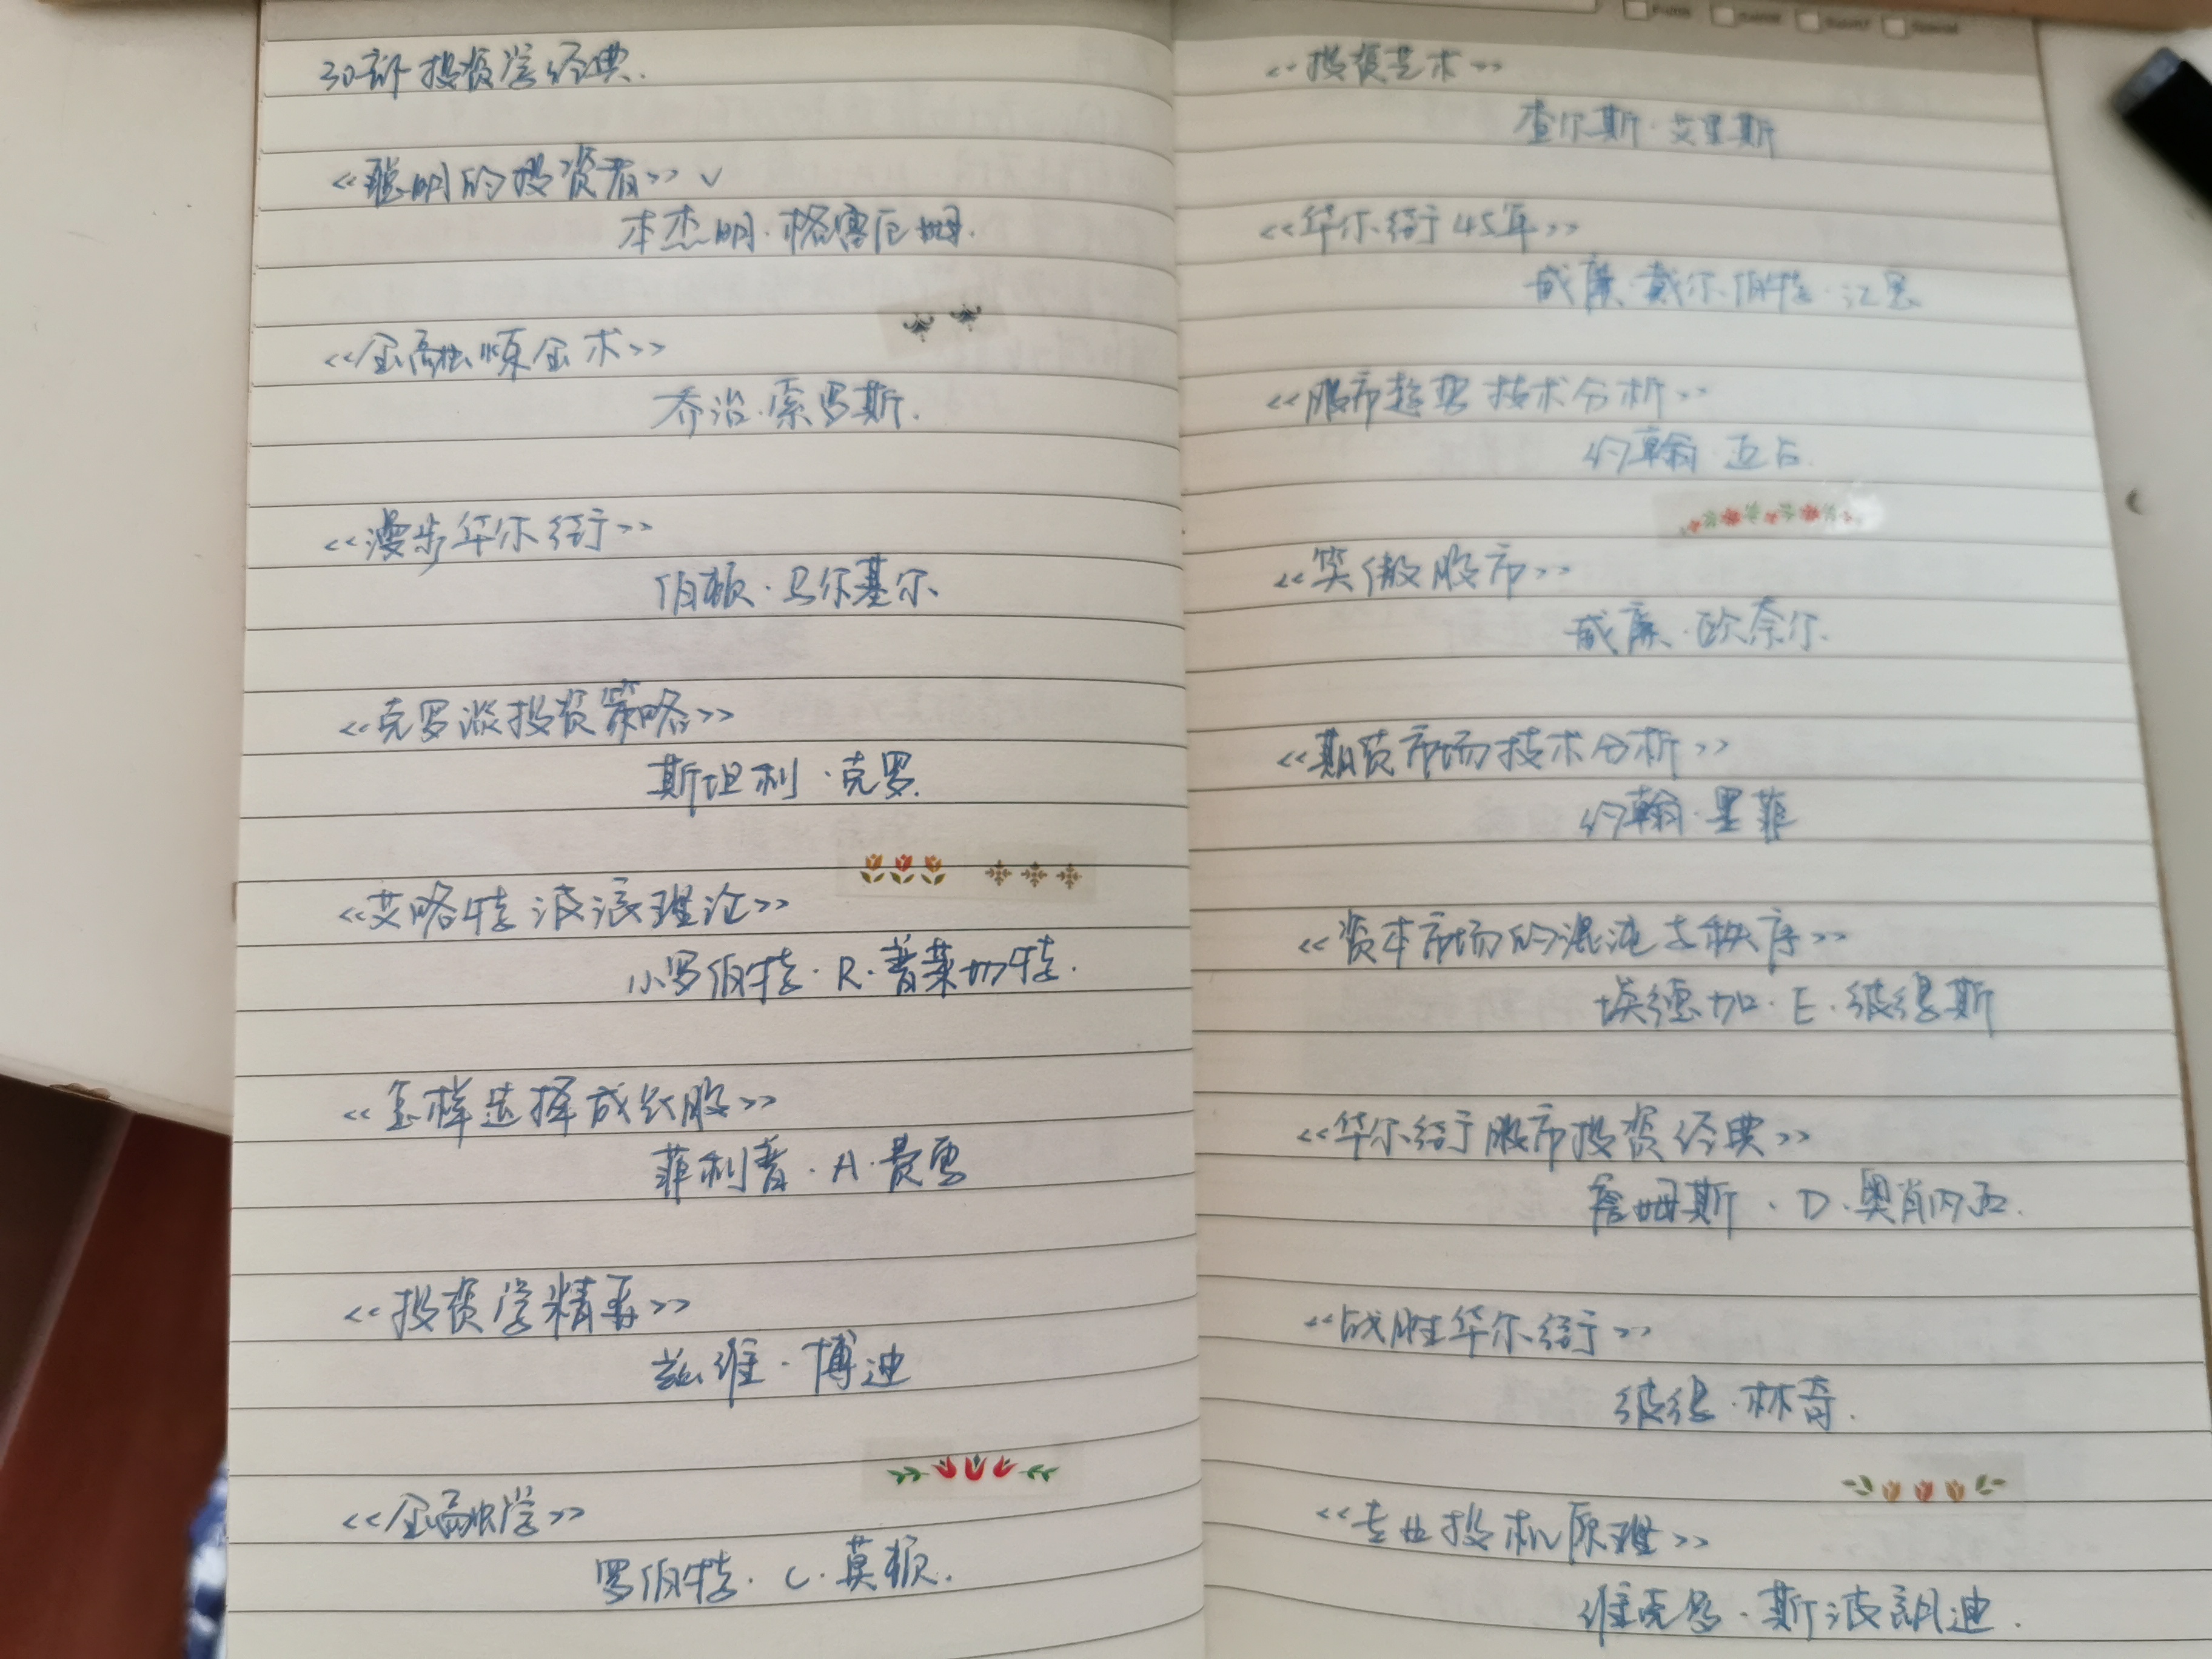 30部投资学经典.
《聪明的投资者》✓
本杰明·格雷厄姆.
《金融炼金术》
乔治·索罗斯.
《漫步华尔街》
伯顿·马尔基尔
《克罗谈投资策略》
斯坦利·克罗.
《艾略特波浪理论》
小罗伯特·R·普莱切特.
《怎样选择成长股》
菲利普·A·费雪
《投资学精要》
兹维·博迪
《金融学》
罗伯特·C·莫顿.
《投资艺术》
查尔斯·艾里斯
《华尔街45年》
威廉·戴尔伯特·江恩
《股市趋势技术分析》
约翰·迈吉.
《笑傲股市》
威廉·欧奈尔.
《期货市场技术分析》
约翰·墨菲
《资本市场的混沌与秩序》
埃德加·E·彼得斯
《华尔街股市投资经典》
詹姆斯·D·奥肖内西.
《战胜华尔街》
彼得·林奇.
《专业投机原理》
维克多·斯波朗迪.